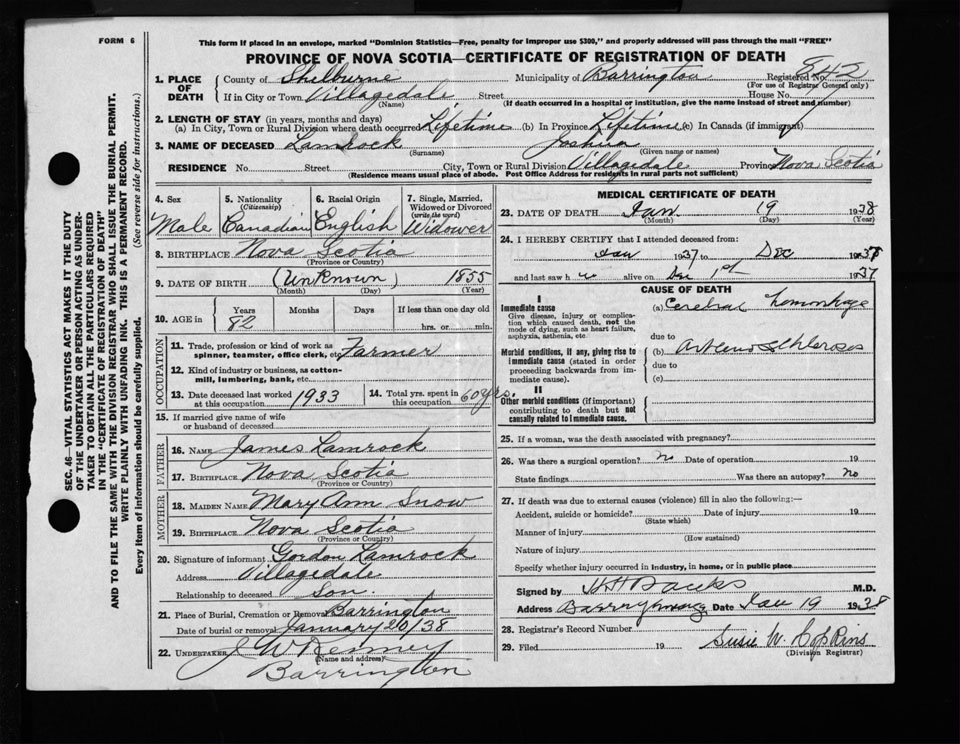 FORM 6
This form if placed in an envelope, marked "Dominion Statistics—Free, penalty for improper use $300," and properly addressed will pass through the mail "FREE"
PROVINCE OF NOVA SCOTIA—CERTIFICATE OF REGISTRATION OF DEATH
1. PLACE OF DEATH
County of Shelburne Municipality of Barrington Registered No. 842
(For use of Registrar General only)
If in City or Town Villagedale Street House No.
(Name) (If death occurred in a hospital or institution, give the name instead of street and number)
2. LENGTH OF STAY (in years, months and days)
(a) In City, Town or Rural Division where death occurred Lifetime (b) In Province Lifetime (c) In Canada (if immigrant)
3. NAME OF DECEASED Lamrock Joshua
(Surname) (Given name or names)
RESIDENCE No. Street City, Town or Rural Division Villagedale Province Nova Scotia
(Residence means usual place of abode. Post Office Address for residents in rural parts not sufficient)
4. Sex Male
5. Nationality (Citizenship) Canadian
6. Racial Origin English
7. Single, Married, Widowed or Divorced (write the word) Widower
8. BIRTHPLACE Nova Scotia
(Province or Country)
9. DATE OF BIRTH (Unknown) 1855
(Month) (Day) (Year)
10. AGE in Years 82 Months Days If less than one day old hrs. or min.
OCCUPATION
11. Trade, profession or kind of work as spinner, teamster, office clerk, etc. Farmer
12. Kind of industry or business, as cotton-mill, lumbering, bank, etc.
13. Date deceased last worked at this occupation 1933
14. Total yrs. spent in this occupation 60 yrs.
15. If married give name of wife or husband of deceased
FATHER
16. NAME James Lamrock
17. BIRTHPLACE Nova Scotia
(Province or Country)
MOTHER
18. MAIDEN NAME Mary Ann Snow
19. BIRTHPLACE Nova Scotia
(Province or Country)
20. Signature of informant Gordon Lamrock
Address Villagedale
Relationship to deceased Son.
21. Place of Burial, Cremation or Removal Barrington
Date of burial or removal January 20/38
22. UNDERTAKER J W
(Name and address)
Barrington
MEDICAL CERTIFICATE OF DEATH
23. DATE OF DEATH Jan 19 1938
(Month) (Day) (Year)
24. I HEREBY CERTIFY that I attended deceased from:
Jan 1937 to Dec 1937
and last saw h alive on Dec 1st 1937
CAUSE OF DEATH
I
Immediate cause
Give disease, injury or complication which caused death, not the mode of dying, such as heart failure, asphyxia, asthenia, etc.
(a) Cerebral hemorrhage
due to
Morbid conditions, if any, giving rise to immediate cause (stated in order proceeding backwards from immediate cause).
(b)
due to
(c)
II
Other morbid conditions (if important) contributing to death but not causally related to immediate cause.
25. If a woman, was the death associated with pregnancy?
26. Was there a surgical operation? no Date of operation 19
State findings Was there an autopsy? no
27. If death was due to external causes (violence) fill in also the following:—
Accident, suicide or homicide? Date of injury 19
(State which)
Manner of injury
(How sustained)
Nature of injury
Specify whether injury occurred in industry, in home, or in public place
Signed by H H Banks M.D.
Address Date Jan 19 1938
28. Registrar's Record Number
29. Filed 19 Susie W. Hopkins
(Division Registrar)
SEC. 46—VITAL STATISTICS ACT MAKES IT THE DUTY
OF THE UNDERTAKER OR PERSON ACTING AS UNDER-
TAKER TO OBTAIN ALL THE PARTICULARS REQUIRED
IN THE "CERTIFICATE OF REGISTRATION OF DEATH"
AND TO FILE THE SAME WITH THE DIVISION REGISTRAR WHO SHALL ISSUE THE BURIAL PERMIT.
WRITE PLAINLY WITH UNFADING INK. THIS IS A PERMANENT RECORD.
Every item of information should be carefully supplied. (See reverse side for instructions.)